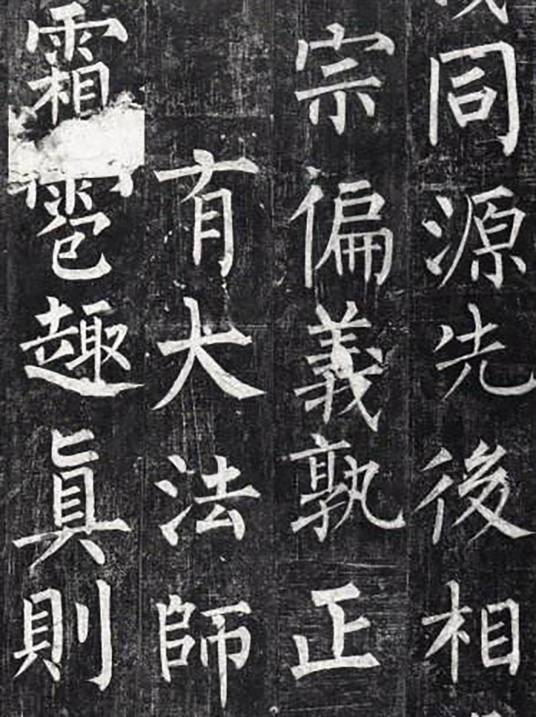 同源先後相
宗偏義孰正
有大法師
霜雹趣真則